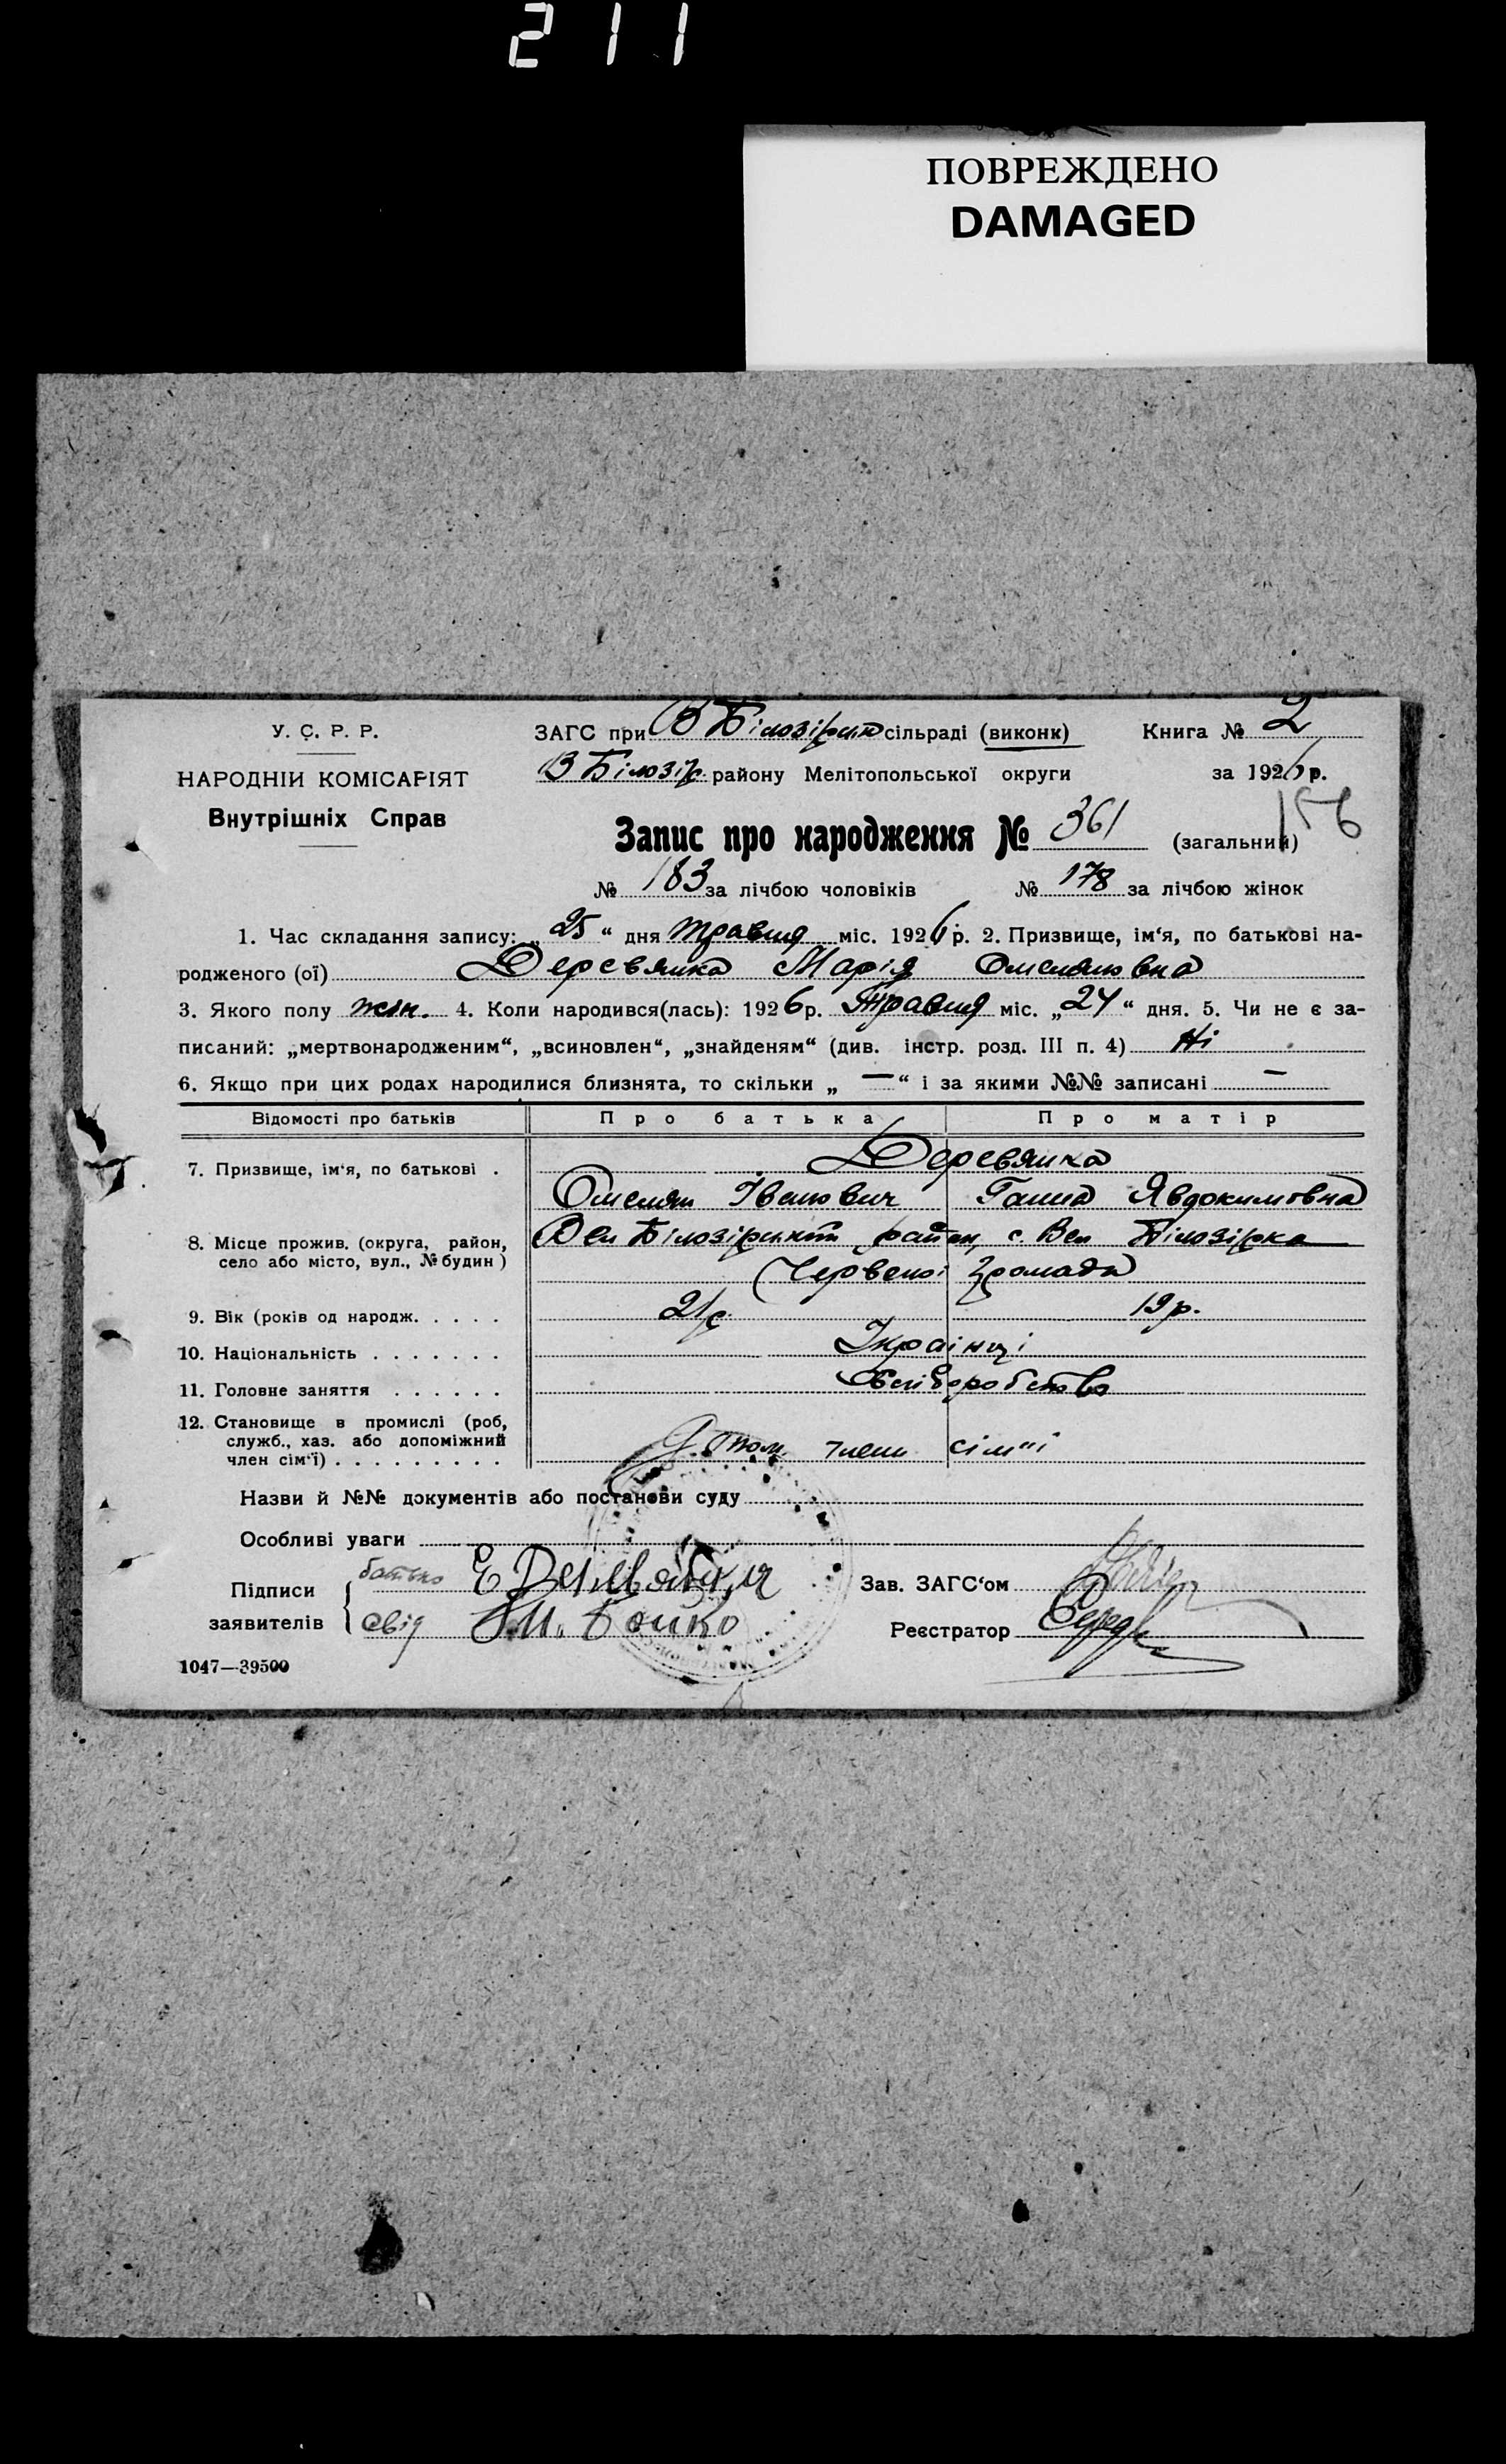 211
ПОВРЕЖДЕНО
DAMAGED
У. С. Р. Р.
НАРОДНІЙ КОМІСАРІЯТ
Внутрішніх Справ
ЗАГС при В Білозірськ сільраді (виконк)
Книга № 2
В Білозір. району Мелітопольської округи
за 1926 р.
156
Запис про народження № 361 (загальний)
№ 183 за лічбою чоловіків № 178 за лічбою жінок
1. Час складання запису: „25“ дня травня міс. 1926 р. 2. Призвище, ім‘я, по батькові на-
родженого (ої) Деревянка Марія Омеляновна
3. Якого полу жін. 4. Коли народився(лась): 1926 р. Травня міс. „24“ дня. 5. Чи не є за-
писаний: „мертвонародженим“, „всиновлен“, „знайденям“ (див. інстр. розд. III п. 4) Ні
6. Якщо при цих родах народилися близнята, то скільки „—“ і за якими №№ записані —
Відомості про батьків Про батька Про матір
7. Призвище, ім‘я, по батькові . Деревянка
Омелян Іванович Ганна Явдокимовна
8. Місце прожив. (округа, район,
село або місто, вул., № будин)
Вел Білозірський район, с. Вел Білозірка
Червоної Громади
9. Вік (років од народж. . . . . 21 р. 19 р.
10. Національність . . . . . . . Українці
11. Головне заняття . . . . . . Хліборобство
12. Становище в промислі (роб,
служб., хаз. або допоміжний
член сім‘ї) . . . . . . . . .
Допом. член сім"ї
Назви й №№ документів або постанови суду
Особливі уваги
Підписи
заявителів
батько Е Деревянка
свід Бойко
Зав. ЗАГС‘ом
Реєстратор
1047—39500